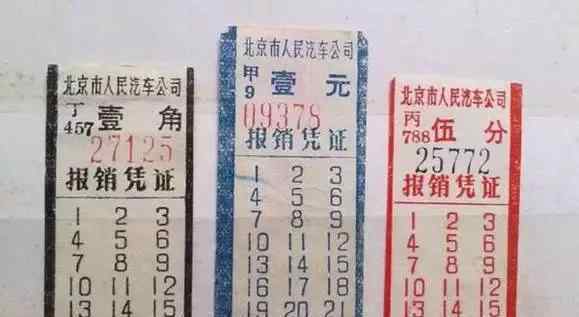 北京市人民汽车公司
丁
457
壹角
27125
报销凭证
1 2 3
4 5 6
7 8 9
10 11 12
13 14 15
北京市人民汽车公司
甲
9
壹元
09378
报销凭证
1 2 3
4 5 6
7 8 9
10 11 12
13 14 15
16 17 18
19 20 21
北京市人民汽车公司
丙
788
伍分
25772
报销凭证
1 2 3
4 5 6
7 8 9
10 11 12
13 14 15